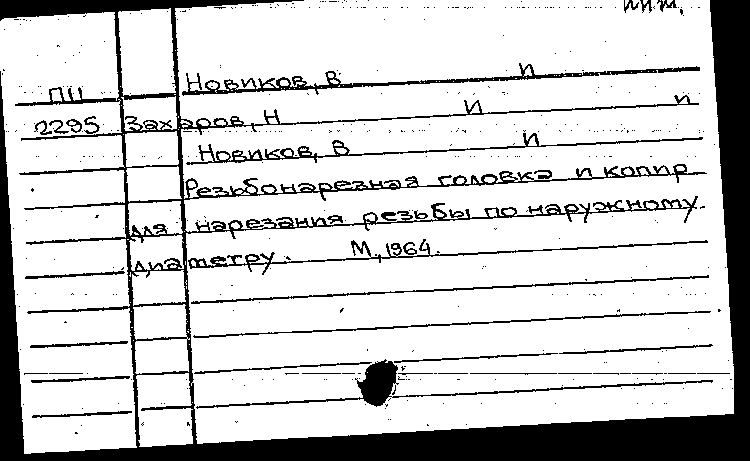 инж.
Новиков, В и
ПII
2295 Захаров, Н и и
Новиков, В и
Резьбонарезная головка и копир
для нарезания резьбы по наружному
диаметру. М., 1964.